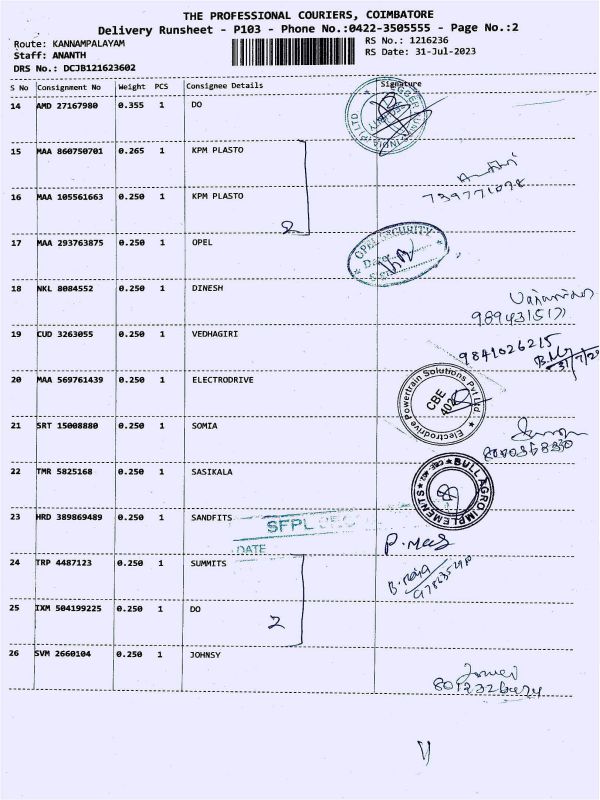 THE PROFESSIONAL COURIERS, COIMBATORE
Delivery Runsheet - P103 - Phone No.:0422-3505555 - Page No.:2
Route: KANNAMPALAYAM RS No.: 1216236
Staff: ANANTH RS Date: 31-Jul-2023
DRS No.: DCJB121623602
S No Consignment No Weight PCS Consignee Details Signature
14 AMD 27167980 0.355 1 DO
15 MAA 860750701 0.265 1 KPM PLASTO
16 MAA 105561663 0.250 1 KPM PLASTO
2
17 MAA 293763875 0.250 1 OPEL OPEL SECURITY
Date
18 NKL 8084552 0.250 1 DINESH
19 CUD 3263055 0.250 1 VEDHAGIRI 9841026215
20 MAA 569761439 0.250 1 ELECTRODRIVE Electrodrive Powertrain Solutions Pvt Ltd
CBE
21 SRT 15008880 0.250 1 SOMIA
22 TMR 5825168 0.250 1 SASIKALA BULL AGRO IMPLEMENTS
23 HRD 389869489 0.250 1 SANDFITS SFPL
DATE
24 TRP 4487123 0.250 1 SUMMITS
25 IXM 504199225 0.250 1 DO
2
26 SVM 2660104 0.250 1 JOHNSY